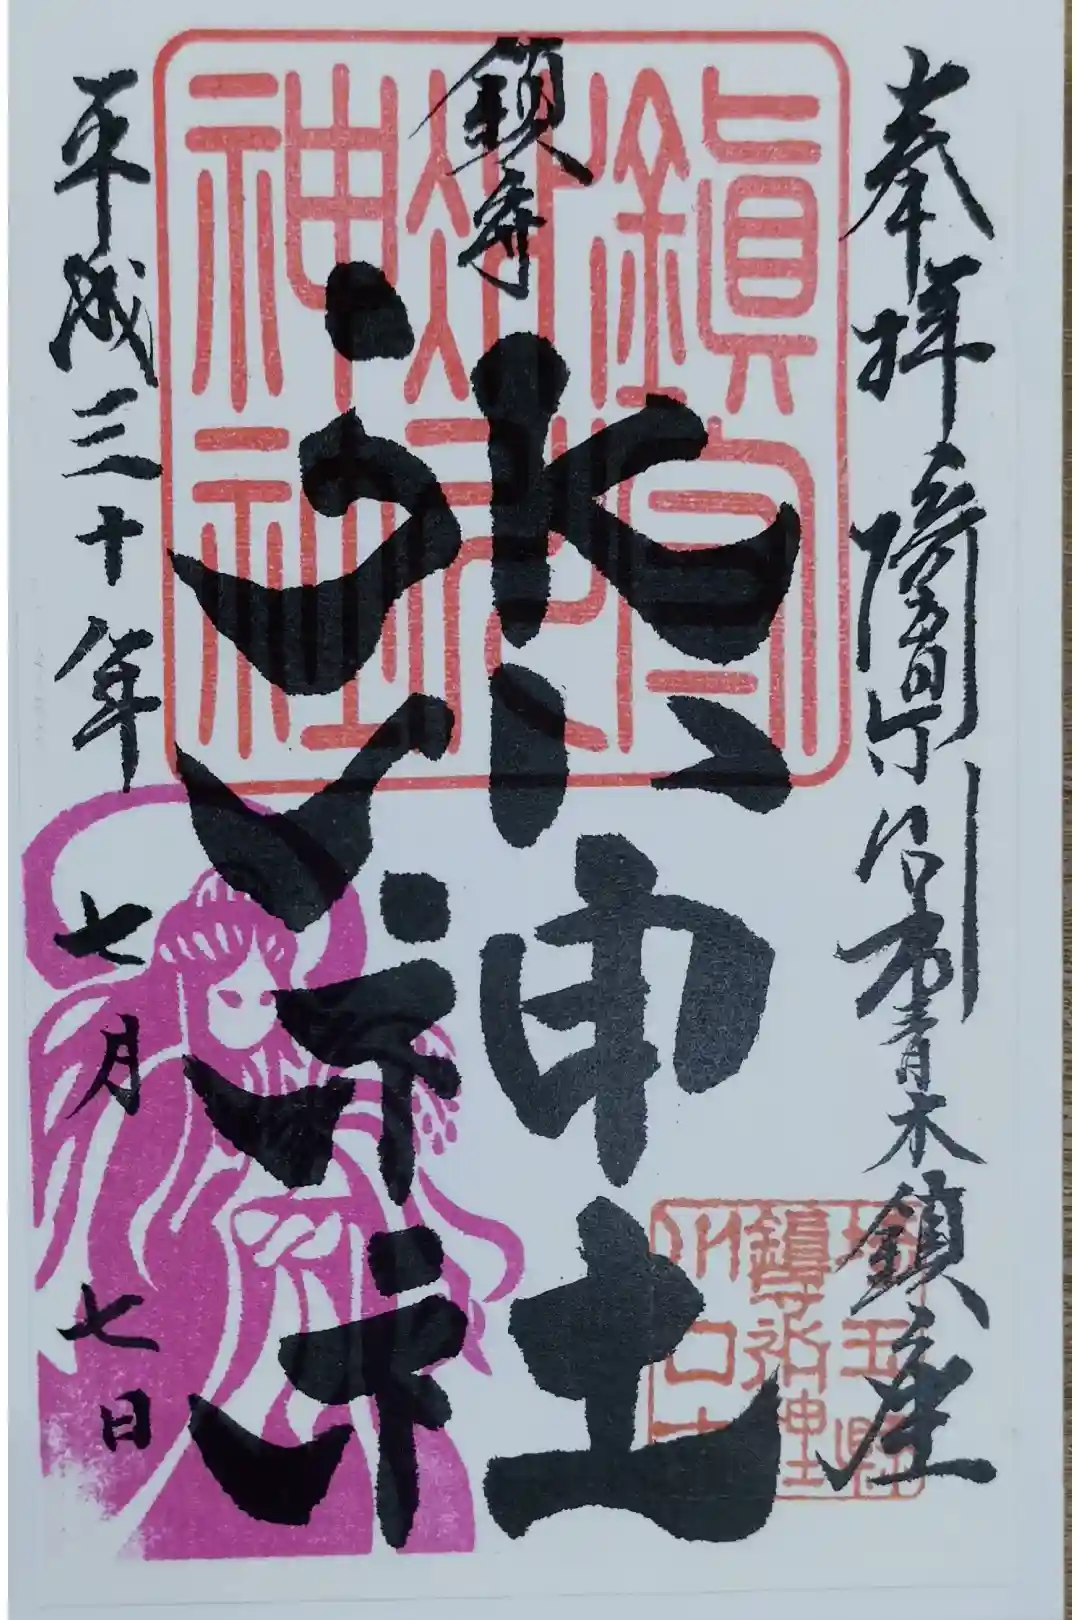 奉拝
青木鎮座
鎮守
氷川神社
平成三十年 七月 七日
鎮守
氷川
神社
埼玉県
鎮守氷川神社
川口市